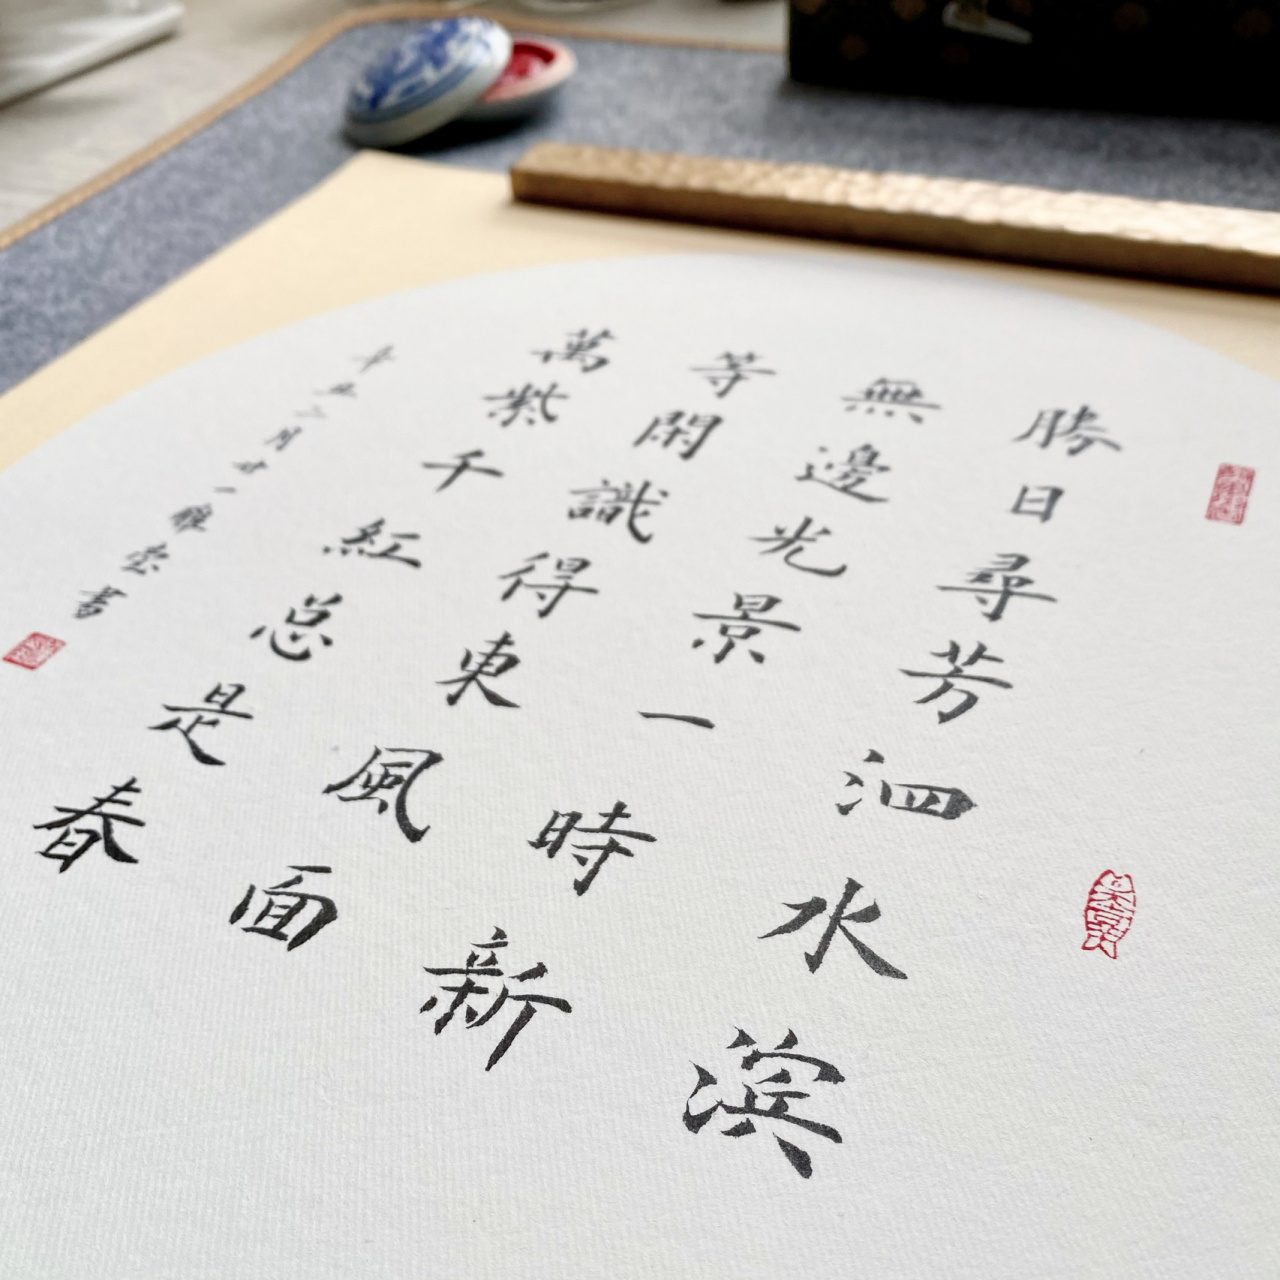 勝日尋芳泗水滨
無邊光景一時新
等閑識得東風面
萬紫千红总是春
辛丑二月廿一雅宏書